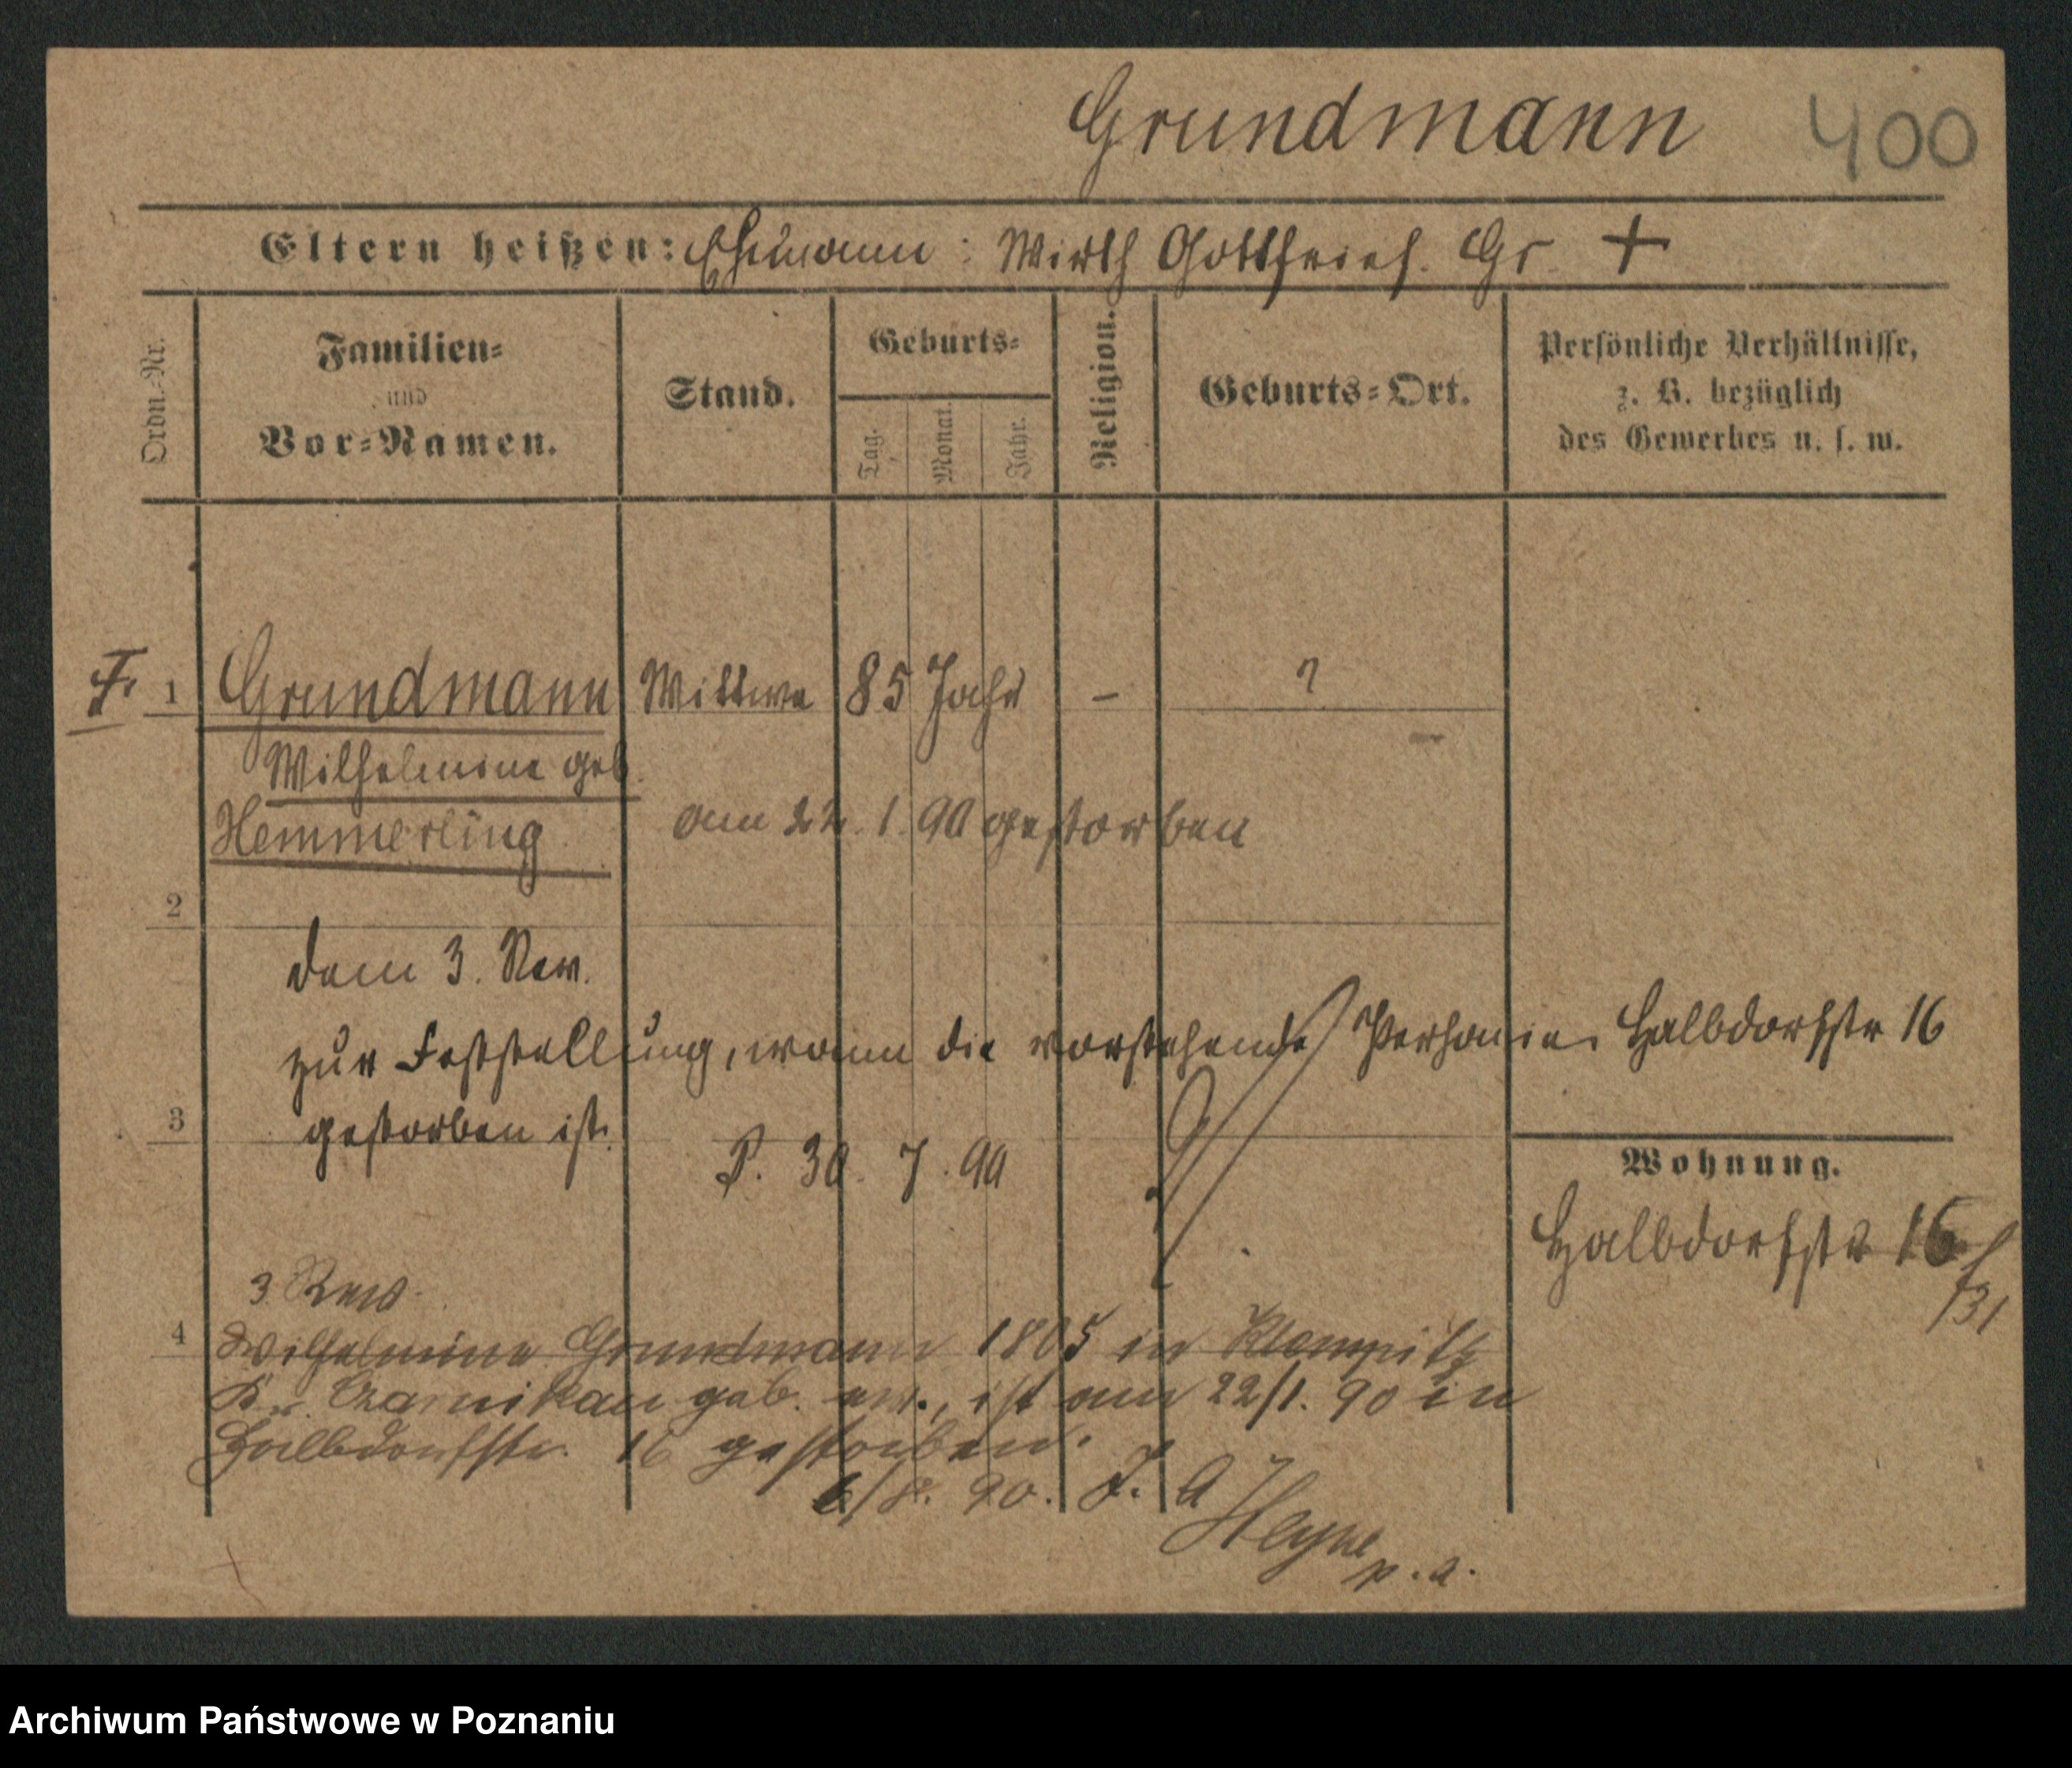 Grundmann 400
Eltern heißen: Ehemann: Wirth Gottfried Gr. +
Ordn.-Nr.
Familien-
und
Vor-Namen.
Stand.
Geburts-
Tag.
Monat.
Jahr.
Religion.
Geburts-Ort.
Persönliche Verhältnisse,
z. B. bezüglich
des Gewerbes u. s. w.
1 Grundmann Wittwe 85 Jahr – ?
Wilhelmine geb.
Hemmerling
am 22. 1. 90 gestorben
2
dem 3. Rev.
zur Feststellung, wann die vorstehende Person
gestorben ist.
Halbdorfstr 16
3
P. 30. 7. 90
Wohnung.
Halbdorfstr 16
/31
3. Rev.
4
Wilhelmine Grundmann 1805 in
Kr. Czarnikau geb. ev., ist am 22/1. 90 in
Halbdorfstr. 16 gestorben.
6/8. 90. J. A
Heyne
p. a.
Archiwum Państwowe w Poznaniu